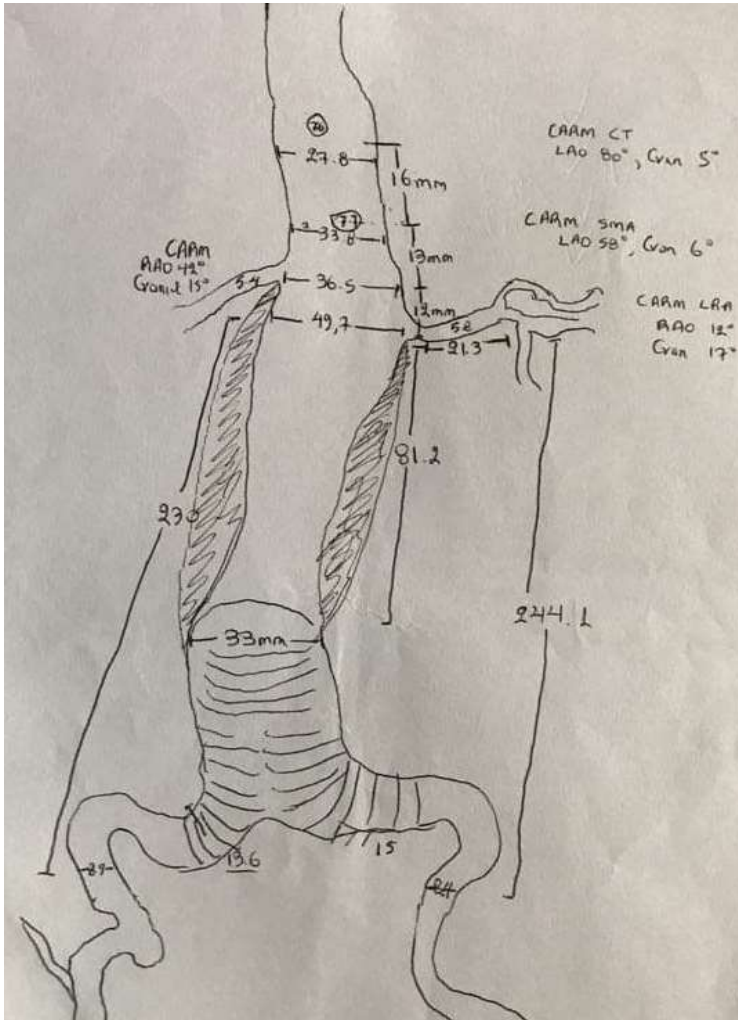 76
27.8
16mm
CARM CT
LAO 80°, Cran 5°
77
33.8
13mm
CARM SMA
LAO 58°, Cran 6°
CARM
RAO 42°
Cranial 15°
5.4
36.5
12mm
49,7
5.8
21.3
CARM LRA
RAO 12°
Cran 17°
81.2
230
244.1
33mm
13.6
15
8.9
8.4